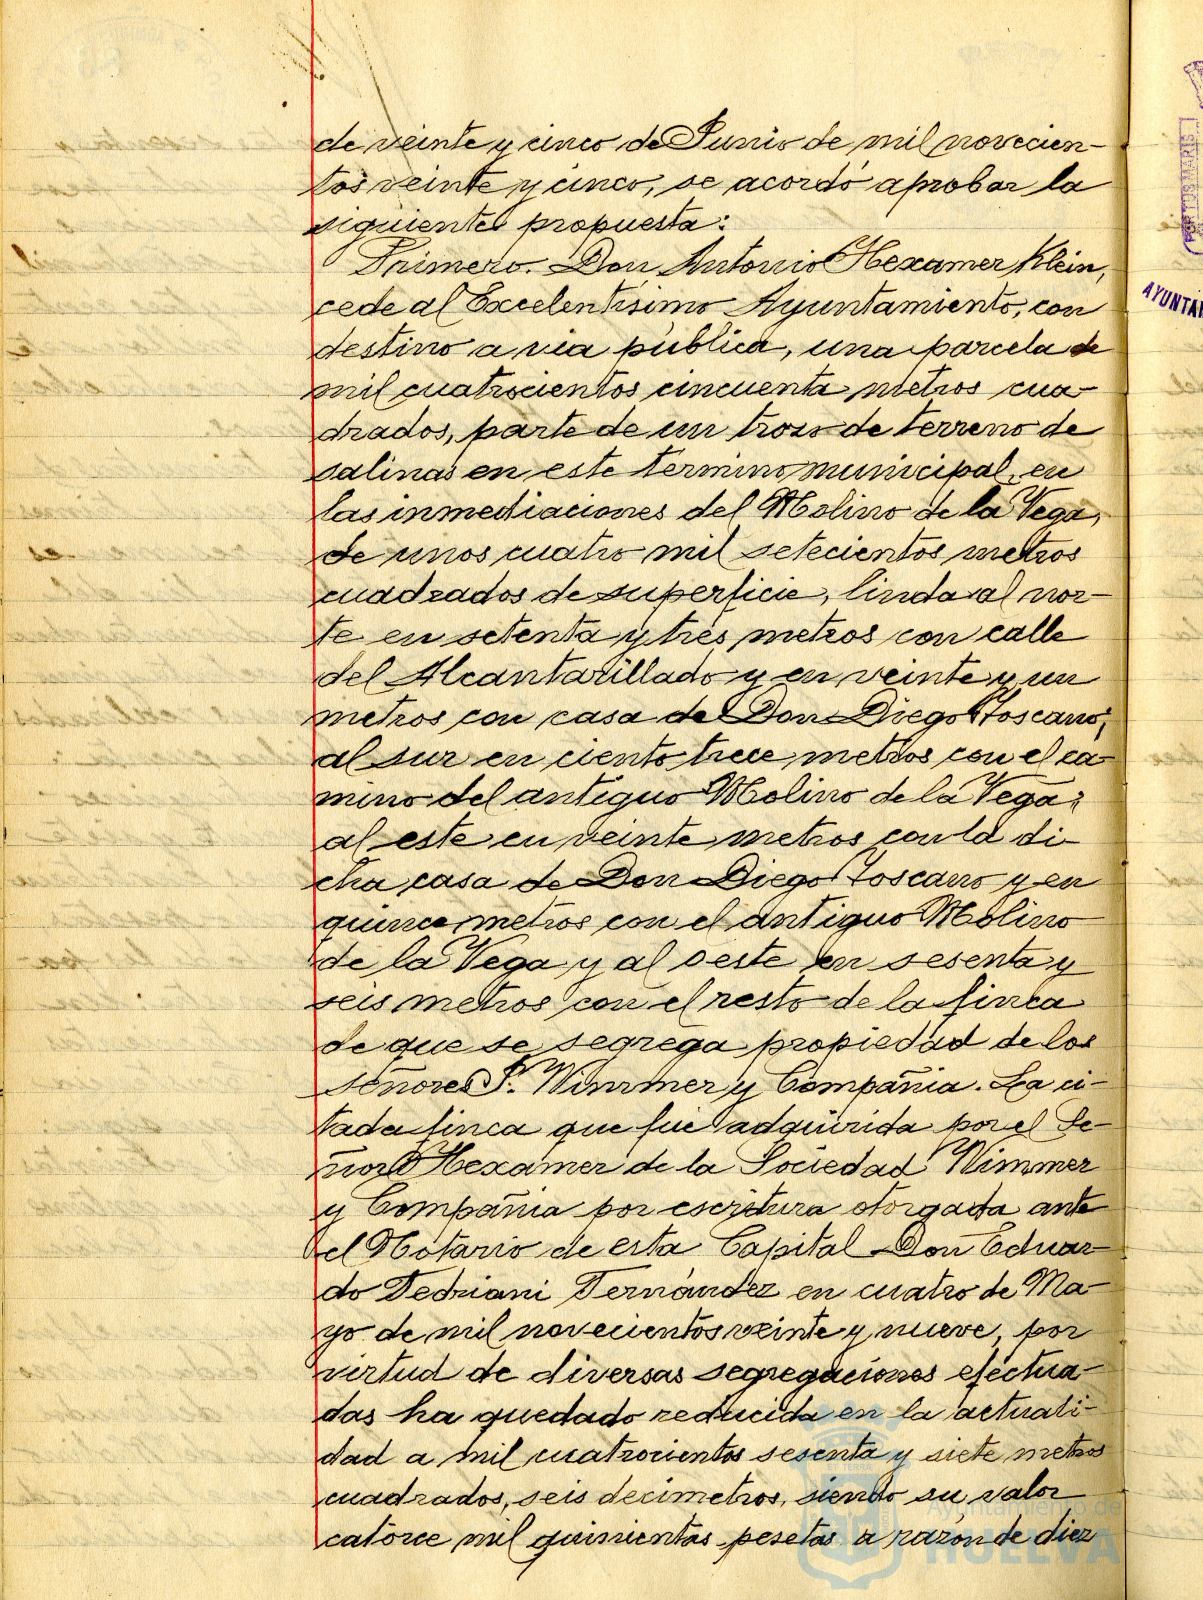 de veinte y cinco de Junio de mil novecien-
tos veinte y cinco, se acordó aprobar la
siguiente propuesta:
Primero. Don Antonio Hexamer Klein,
cede al Excelentísimo Ayuntamiento, con
destino a via pública, una parcela de
mil cuatrocientos cincuenta metros cua-
drados, parte de un trozo de terreno de
salinas en este termino municipal, en
las inmediaciones del Molino de la Vega,
de unos cuatro mil setecientos metros
cuadrados de superficie, linda al nor-
te en setenta y tres metros con calle
del Alcantarillado y en veinte y un
metros con casa de Don Diego Toscano;
al sur en ciento trece metros con el ca-
mino del antiguo Molino de la Vega;
al este en veinte metros con la di-
cha casa de Don Diego Toscano y en
quince metros con el antiguo Molino
de la Vega y al oeste en sesenta y
seis metros con el resto de la finca
de que se segrega propiedad de los
señores P. Winmer y Compañia. La ci-
tada finca que fue adquirida por el Se-
ñor Hexamer de la Sociedad Wimmer
y Compañia por escritura otorgada ante
el Notario de esta Capital Don Eduar-
do Fedriani Fernández en cuatro de Ma-
yo de mil novecientos veinte y nueve, por
virtud de diversas segregaciones efectua-
das ha quedado reducida en la actuali-
dad a mil cuatrocientos sesenta y siete metros
cuadrados, seis decimetros, siendo su valor
catorce mil quinientas pesetas a razón de diez
PORTUS MARIS
AYUNTA
Ayuntamiento de
HUELVA